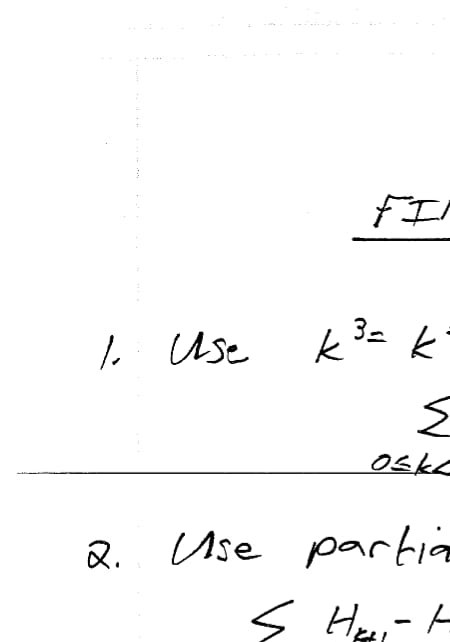 FI
1. Use k³= k
Σ
0≤k<
2. Use partia
Σ H_{k+1} - H